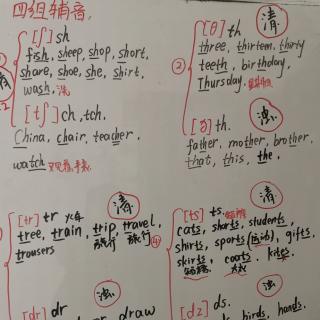 四组辅音.
[ʃ] sh
fish, sheep, shop, short,
share, shoe, she, shirt,
wash, 洗
[tʃ] ch, tch.
China, chair, teacher,
watch 观看, 手表.
② [θ] th 清
three, thirteen, thirty
teeth, birthday,
Thursday.
[ð] th. 浊
father, mother, brother,
that, this, the.
清
[tr] tr 火车
tree, train, trip, travel,
旅行 旅行
trousers
④ [ts] ts. 清
cats, shorts, students,
shirts, sports(运动), gifts,
skirts, coats. kites.
短裙 大衣
浊
[dr] dr
draw
浊
[dz] ds.
birds, hands.